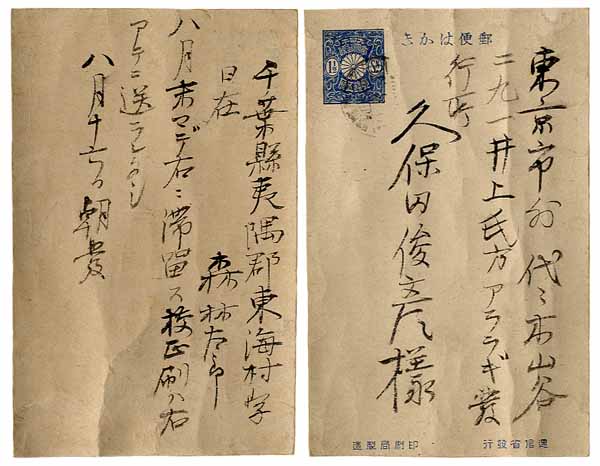 郵便はかき
東京市外代々木山谷
二九一井上氏方アラヽギ發
行所
久保田俊彦様
逓信省發行 印刷局製造
千葉縣夷隅郡東海村字
日在
森林太郎
八月末マデ右ニ滞留ス校正刷ハ右
アテニ送ラレタシ
八月十六日朝發